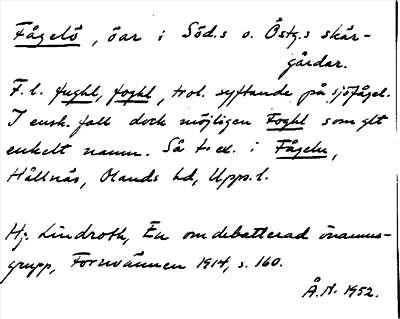 Fågelö, öar i Söd.s o. Östg.s skär-
gårdar.
F.l. fughl, foghl, trol. syftande på sjöfågel.
I ensk. fall dock möjligen Foghl som gt
enkelt namn. Så t. ex. i Fågeln,
Hållnäs, Olands hd, Upps. l.
Hj. Lindroth, En omdebatterad önamns-
grupp, Fornvännen 1914, s. 160.
Å.N. 1952.